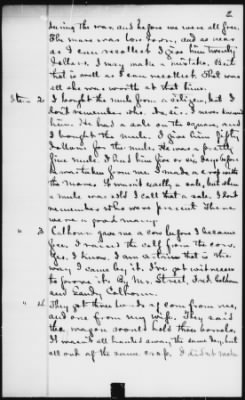 2
during the war and before we were all free.
The mare was low down, and as near
as I can recollect I give him twenty
dollars. I may make a mistake. But
that is well as I can recollect. That was
all she was worth at that time.
Item 2. I bought the mule from a citizen, but I
don't remember who. I never knowed
him. He had a sale on the square, and
I bought the mule. I give him fifty
dollars for the mule. He was a pretty
fine mule. I had him five or six days before
he was taken from me. I made a crop with
the mare. It wasn't exactly a sale, but when
a mule was sold I call that a sale. I don't
remember who were present. There
were a good many.
" 3. Calhoun gave me a cow before I became
free. I raised the calf from the cow.
Yes, I know. I am certain that is the
way I came by it. I've got witnesses
to prove it by Mr. Street, Fred Calhoun
and Sandy Calhoun.
" 4. They got three loads of corn from me,
and one from my wife. They said
the wagon would hold three barrels.
It wasn't all hauled away the same day, but
all out of the same crop. I didn't make